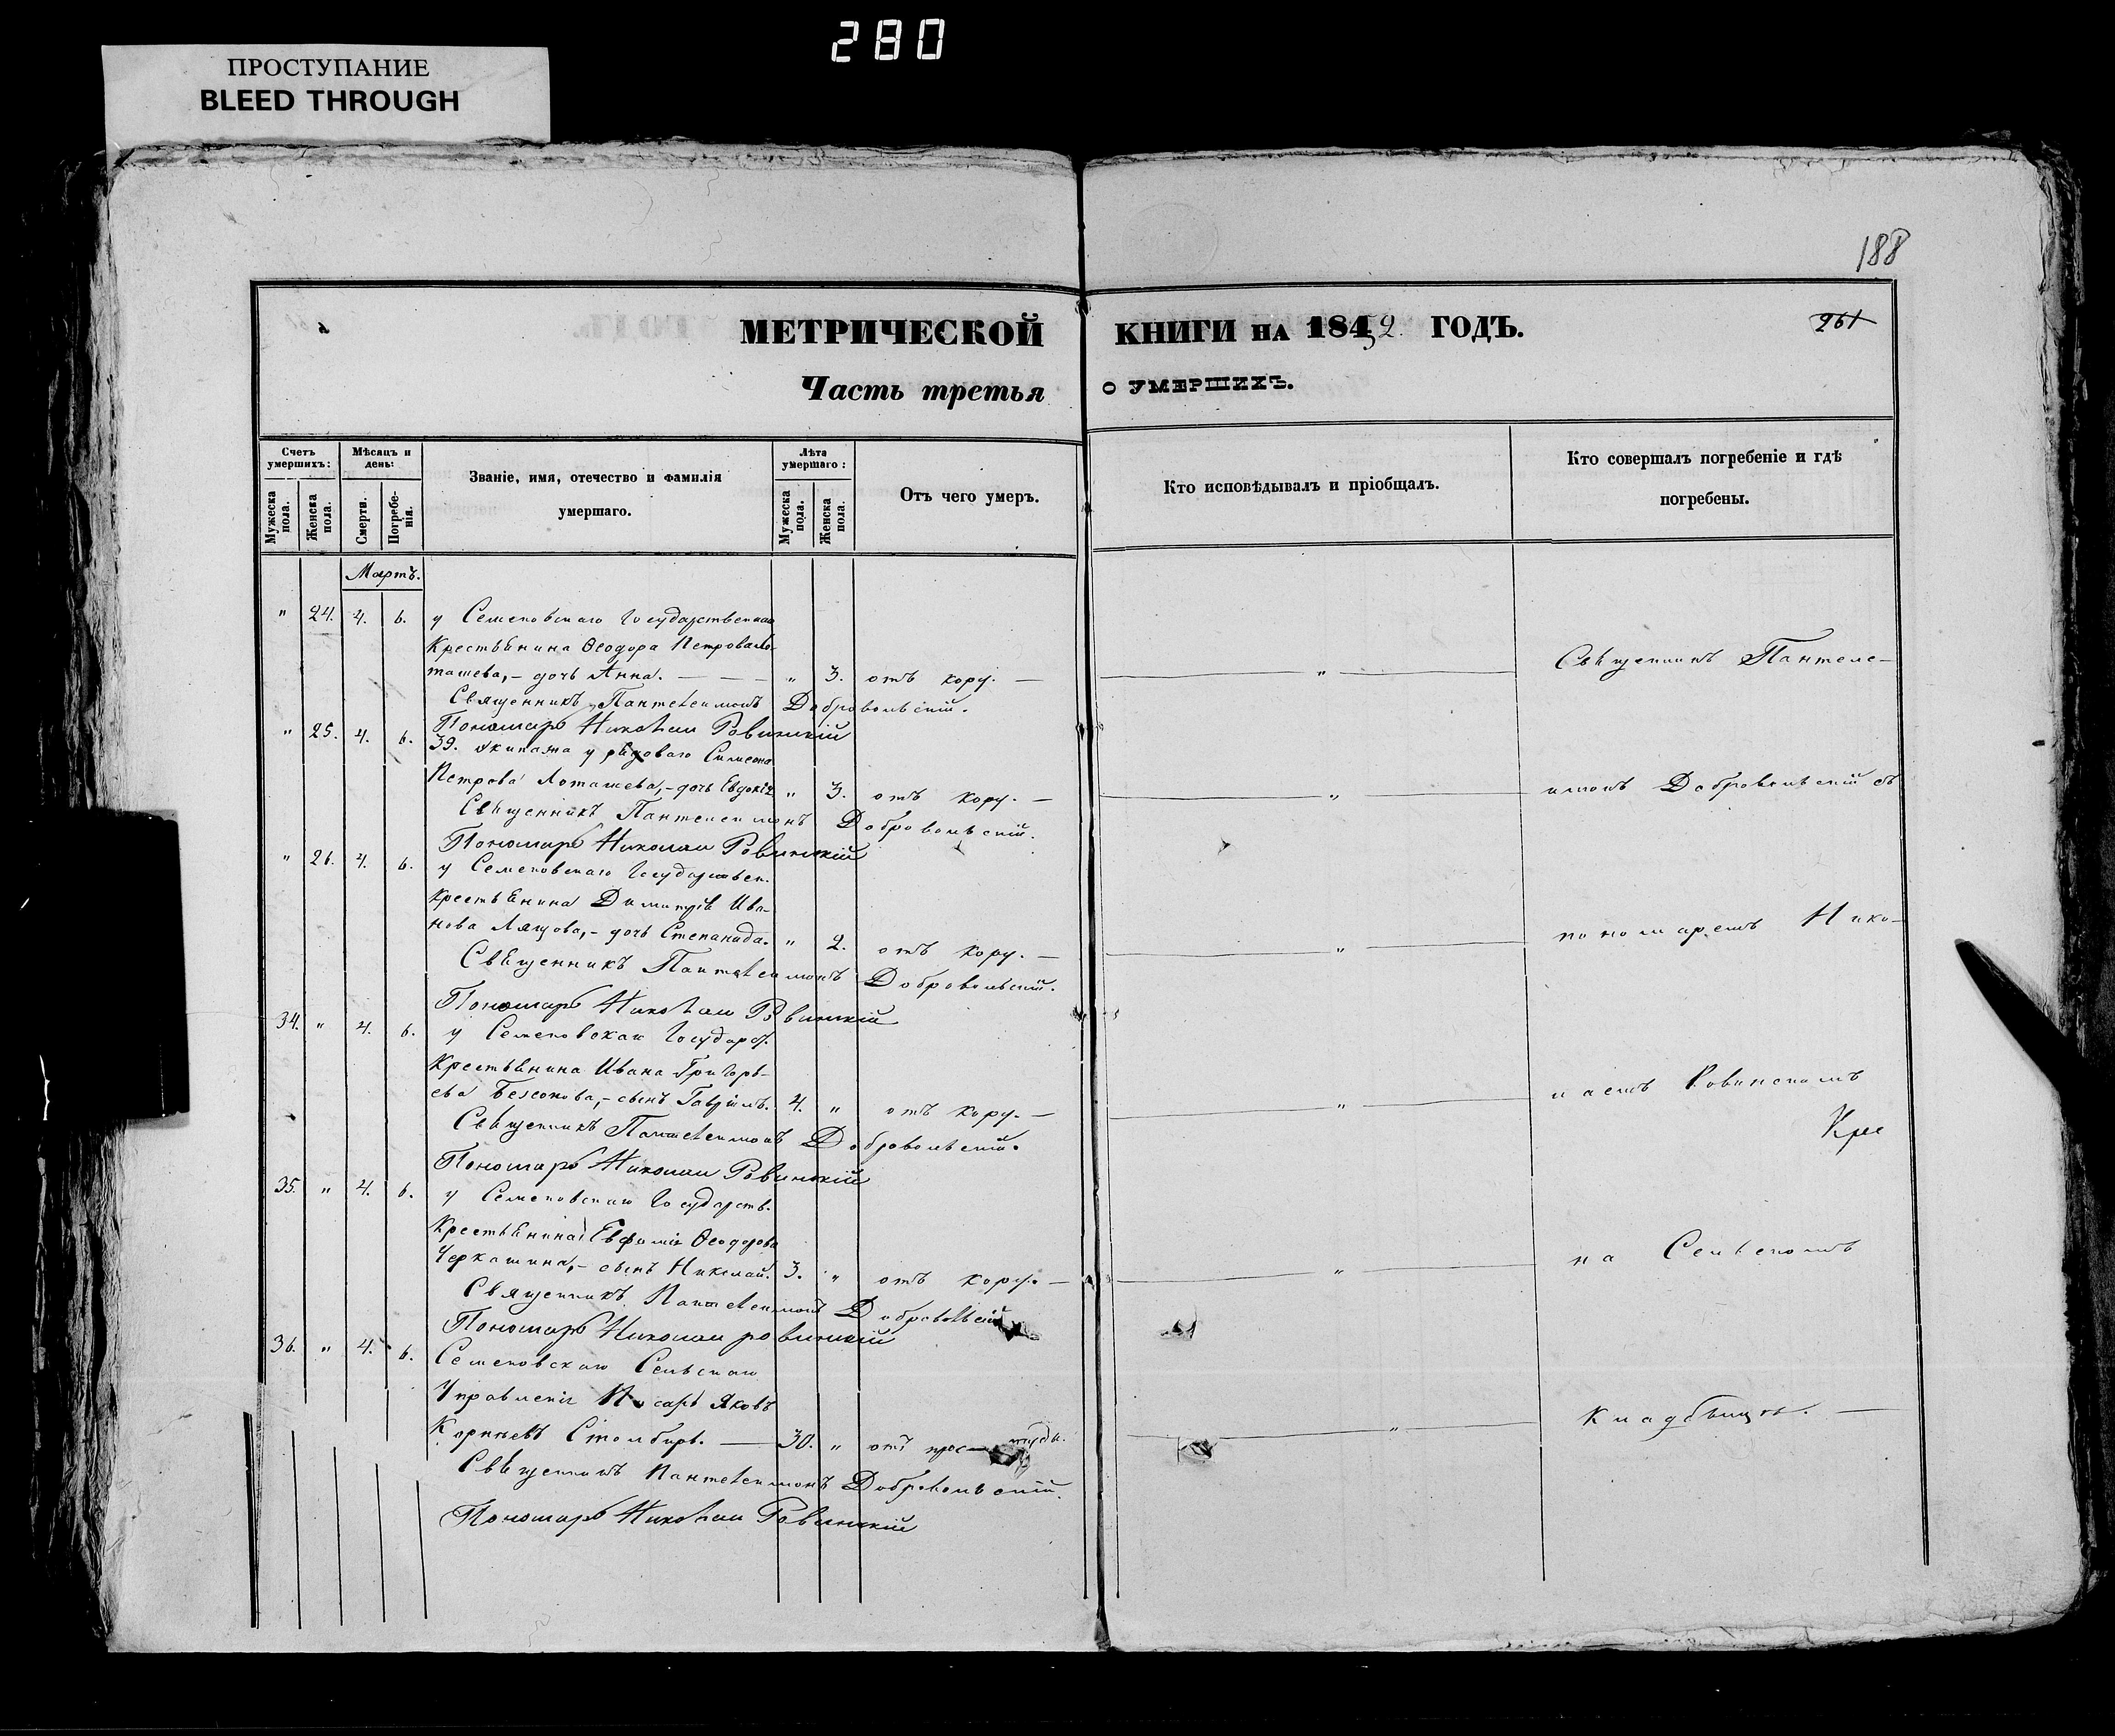 280
ПРОСТУПАНИЕ
BLEED THROUGH
188
МЕТРИЧЕСКОЙ КНИГИ НА 18452. ГОДЪ.
261
Часть третья о УМЕРШИХЪ.
Счетъ умершихъ:
Мужеска пола.
Женска пола.
Мѣсяцъ и день:
Смерти.
Погребенія.
Званіе, имя, отечество и фамилія
умершаго.
Лѣта умершаго:
Мужеска пола.
Женска пола.
Отъ чего умеръ.
Кто исповѣдывалъ и пріобщалъ.
Кто совершалъ погребеніе и гдѣ
погребены.
Мартъ.
" 24. 4. 6. у Семеновскаго Государственнаго
Крестьянина Ѳеодора Петрова Ло-
ташева,- дочь Анна. — — — " 3. отъ кору. — "
Священникъ Пантелеимонъ Добровольскій.
Священникъ Пантеле-
Пономарь Николай Ровинскій
" 25. 4. 6. 39. экипажа у рядоваго Симеона
Петрова Лоташева,- дочь Евдокія " 3. отъ кору. — "
Священникъ Пантелеимонъ Добровольскій.
имонъ Добровольскій съ
Пономарь Николай Ровинскій
" 26. 4. 6. у Семеновскаго Государствен.
крестьянина Димитрія Ива-
нова Ляпова,- дочь Степанида. " 2. отъ кору. — "
Священникъ Пантелеимонъ Добровольскій.
пономаремъ Нико-
Пономарь Николай Ровинскій
34. " 4. 6. у Семеновскаго Государст.
Крестьянина Ивана Григорь-
ева Безсонова,- сынъ Гавріилъ. 4. " отъ кору. — "
Священникъ Пантелеимонъ Добровольскій.
лаемъ Ровинскимъ
Пономарь Николай Ровинскій
35. " 4. 6. у Семеновскаго Государств.
Крестьянина Евфимія Ѳеодорова
Черкашина,- сынъ Николай. 3. " отъ кору. — "
Священникъ Пантелеимонъ Добровольскій
на Сельскомъ
Пономарь Николай Ровинскій
36. " 4. 6. Семеновскаго Сельскаго
Управленія Писарь Яковъ
Корнѣевъ — 30. " отъ простуды. "
Священникъ Пантелеимонъ Добровольскій.
Кладбищѣ. —
Пономарь Николай Ровинскій